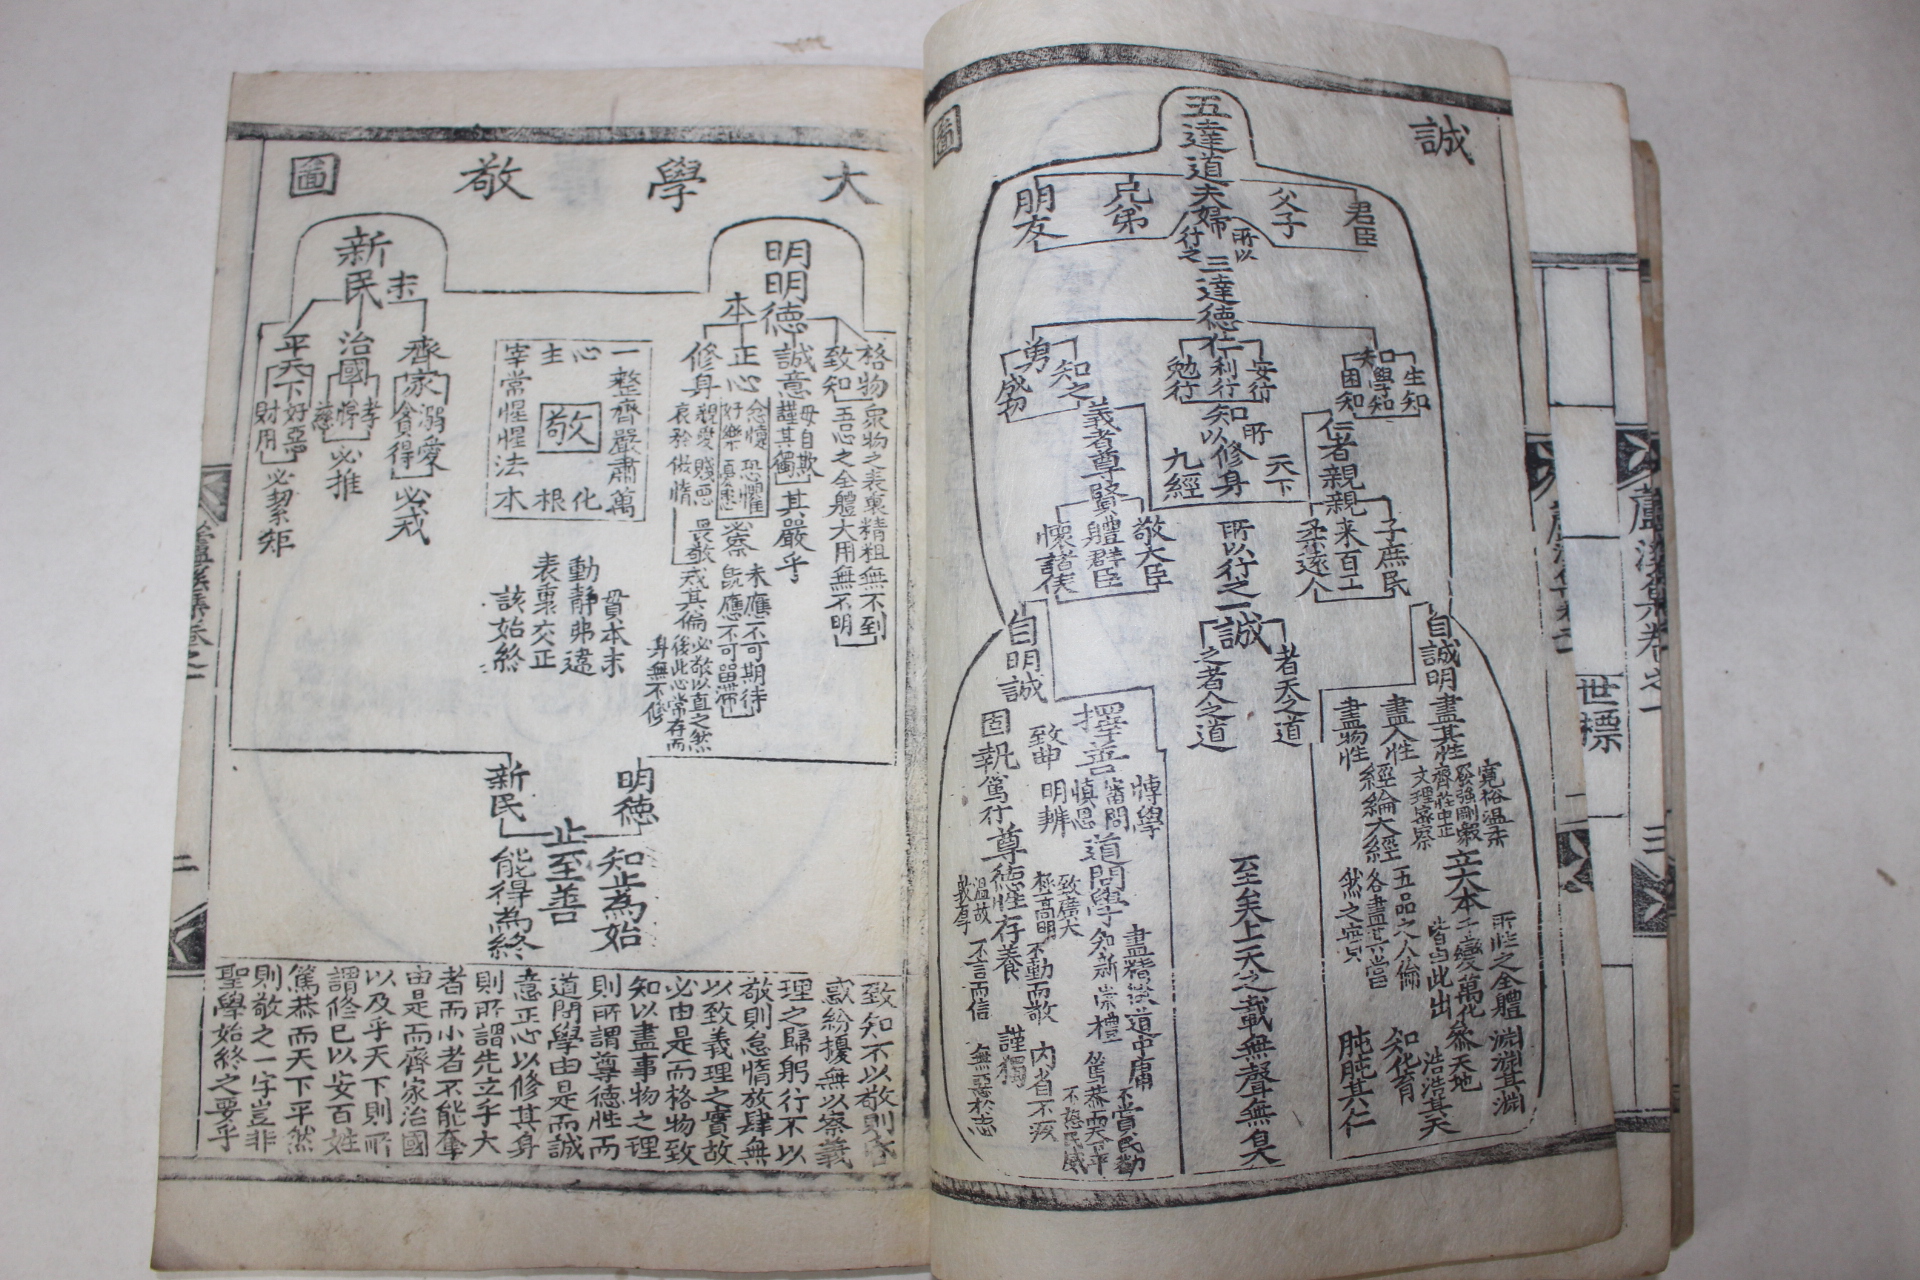 誠
圖
五達道
君臣
父子
夫婦
兄弟
朋友
所以
行之
三達德
生知
學知
困知
知
仁
安行
利行
勉行
勇
知之
成功
知所
以修身
天下
九經
仁者親親
義者尊賢
子庶民
来百工
柔遠人
敬大臣
體群臣
懷諸侯
所以行之一
誠
者天之道
之者人之道
自誠明
盡其性
盡人性
盡物性
寬裕温柔
發強剛毅
齊莊中正
文理密察
經綸大經
立大本
五品之人倫
各盡其當
然之實
所性之全體
千變萬化
皆由此出
參天地
知化育
淵淵其淵
浩浩其天
肫肫其仁
至矣上天之載無聲無臭
自明誠
擇善
固執
致曲
博學
審問
慎思
明辨
篤行
道問學
尊德性
盡精微
道中庸
致廣大
極高明
知新
崇禮
温故
敦厚
存養
不動而敬
不言而信
謹獨
内省不疚
無惡於志
不賞民勸
不怒民威
篤恭而天下平
大學敬圖
明明德
本
格物
致知
衆物之表裏精粗無不到
吾心之全體大用無不明
誠意
毋自欺
謹其獨
其嚴乎
正心
忿懥
恐懼
好樂
憂患
必察
未應不可期待
旣應不可留滯
修身
親愛
賤惡
哀矜
傲惰
畏敬
戒其偏
必敬以直之然
後此心常存而
身無不修
新民
末
齊家
溺愛
貪得
必戒
治國
孝
悌
慈
必推
平天下
好惡
財用
必絜矩
敬
一整齊嚴肅萬
心
化
主
根
宰常惺惺法本
貫本末
動靜弗違
表裏交正
該始終
明德
新民
止至善
知止為始
能得為終
致知不以敬則昏
惑紛擾無以察義
理之歸躬行不以
敬則怠惰放肆無
以致義理之實故
必由是而格物致
知以盡事物之理
則所謂尊德性而
道問學由是而誠
意正心以修其身
則所謂先立乎大
者而小者不能奪
由是而齊家治國
以及乎天下則所
謂修已以安百姓
篤恭而天下平然
則敬之一字豈非
聖學始終之要乎
蘆溪集卷之一
二
世標
蘆溪集卷之一
三